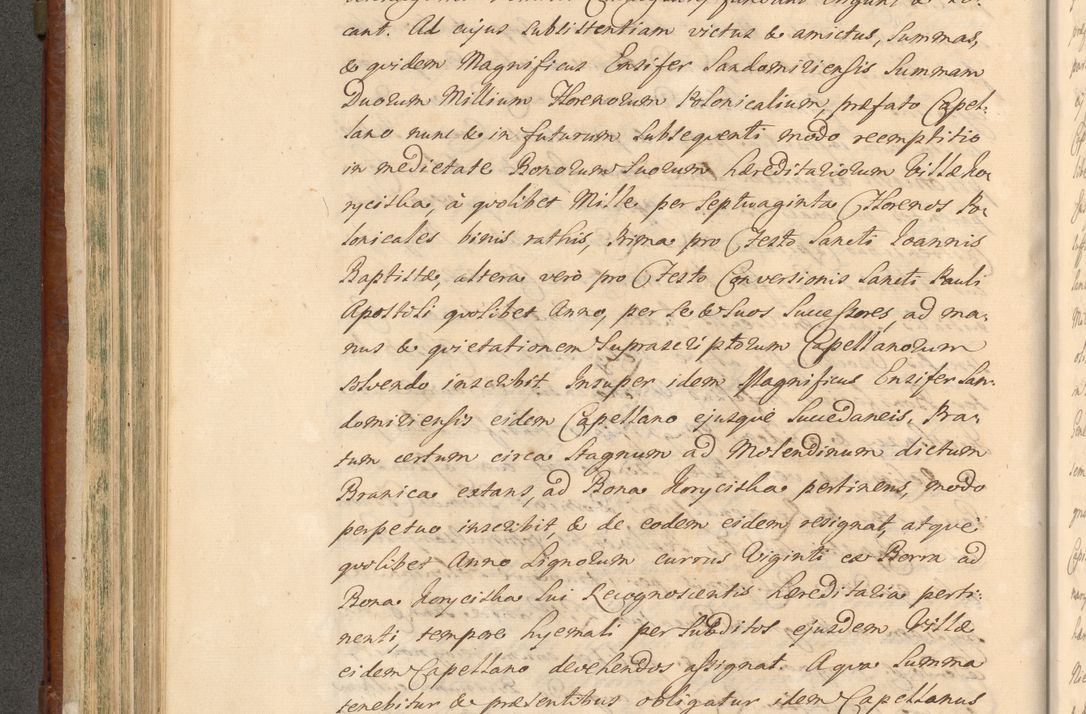 cant. Ad cujus sublistentiam victus & amictus, Summas,
& quidem Magnificus Ensifer Sandomiriensis Summam
Duorum Millium Florenorum Polonicalium, præfato Capel-
lano nunc & in futurum subsequenti modo reemptitio
in medietate Bonorum Suorum hæreditariorum Villæ Ko-
ryciska, à quolibet Mille per Septuaginta Florenos Po-
lonicales binis rathis, Prima pro Festo Sancti Joannis
Baptistæ, altera verò pro Festo Conversionis Sancti Pauli
Apostoli quolibet Anno, per se & Suos Successores, ad ma-
nus & quietationem Suprascriptorum Capellanorum
solvendo inscribit. Insuper idem Magnificus Ensifer San-
domiriensis eidem Capellano ejusque Succedaneis, Pra-
tum certum circa Stagnum ad Molendinum dictum
Branica extans, ad Bona Koryciska pertinens, modo
perpetuo inscribit, & de eodem eidem resignat, atque
quolibet Anno Lignorum currus Viginti ex Borra ad
Bona Koryciska sui Recognoscentis hæreditaria perti-
nenti, tempore hyemali per Subditos ejusdem Villæ
eidem Capellano devehendos assignat. A qua Summa
tenebitur & præsentibus obligatur idem Capellanus